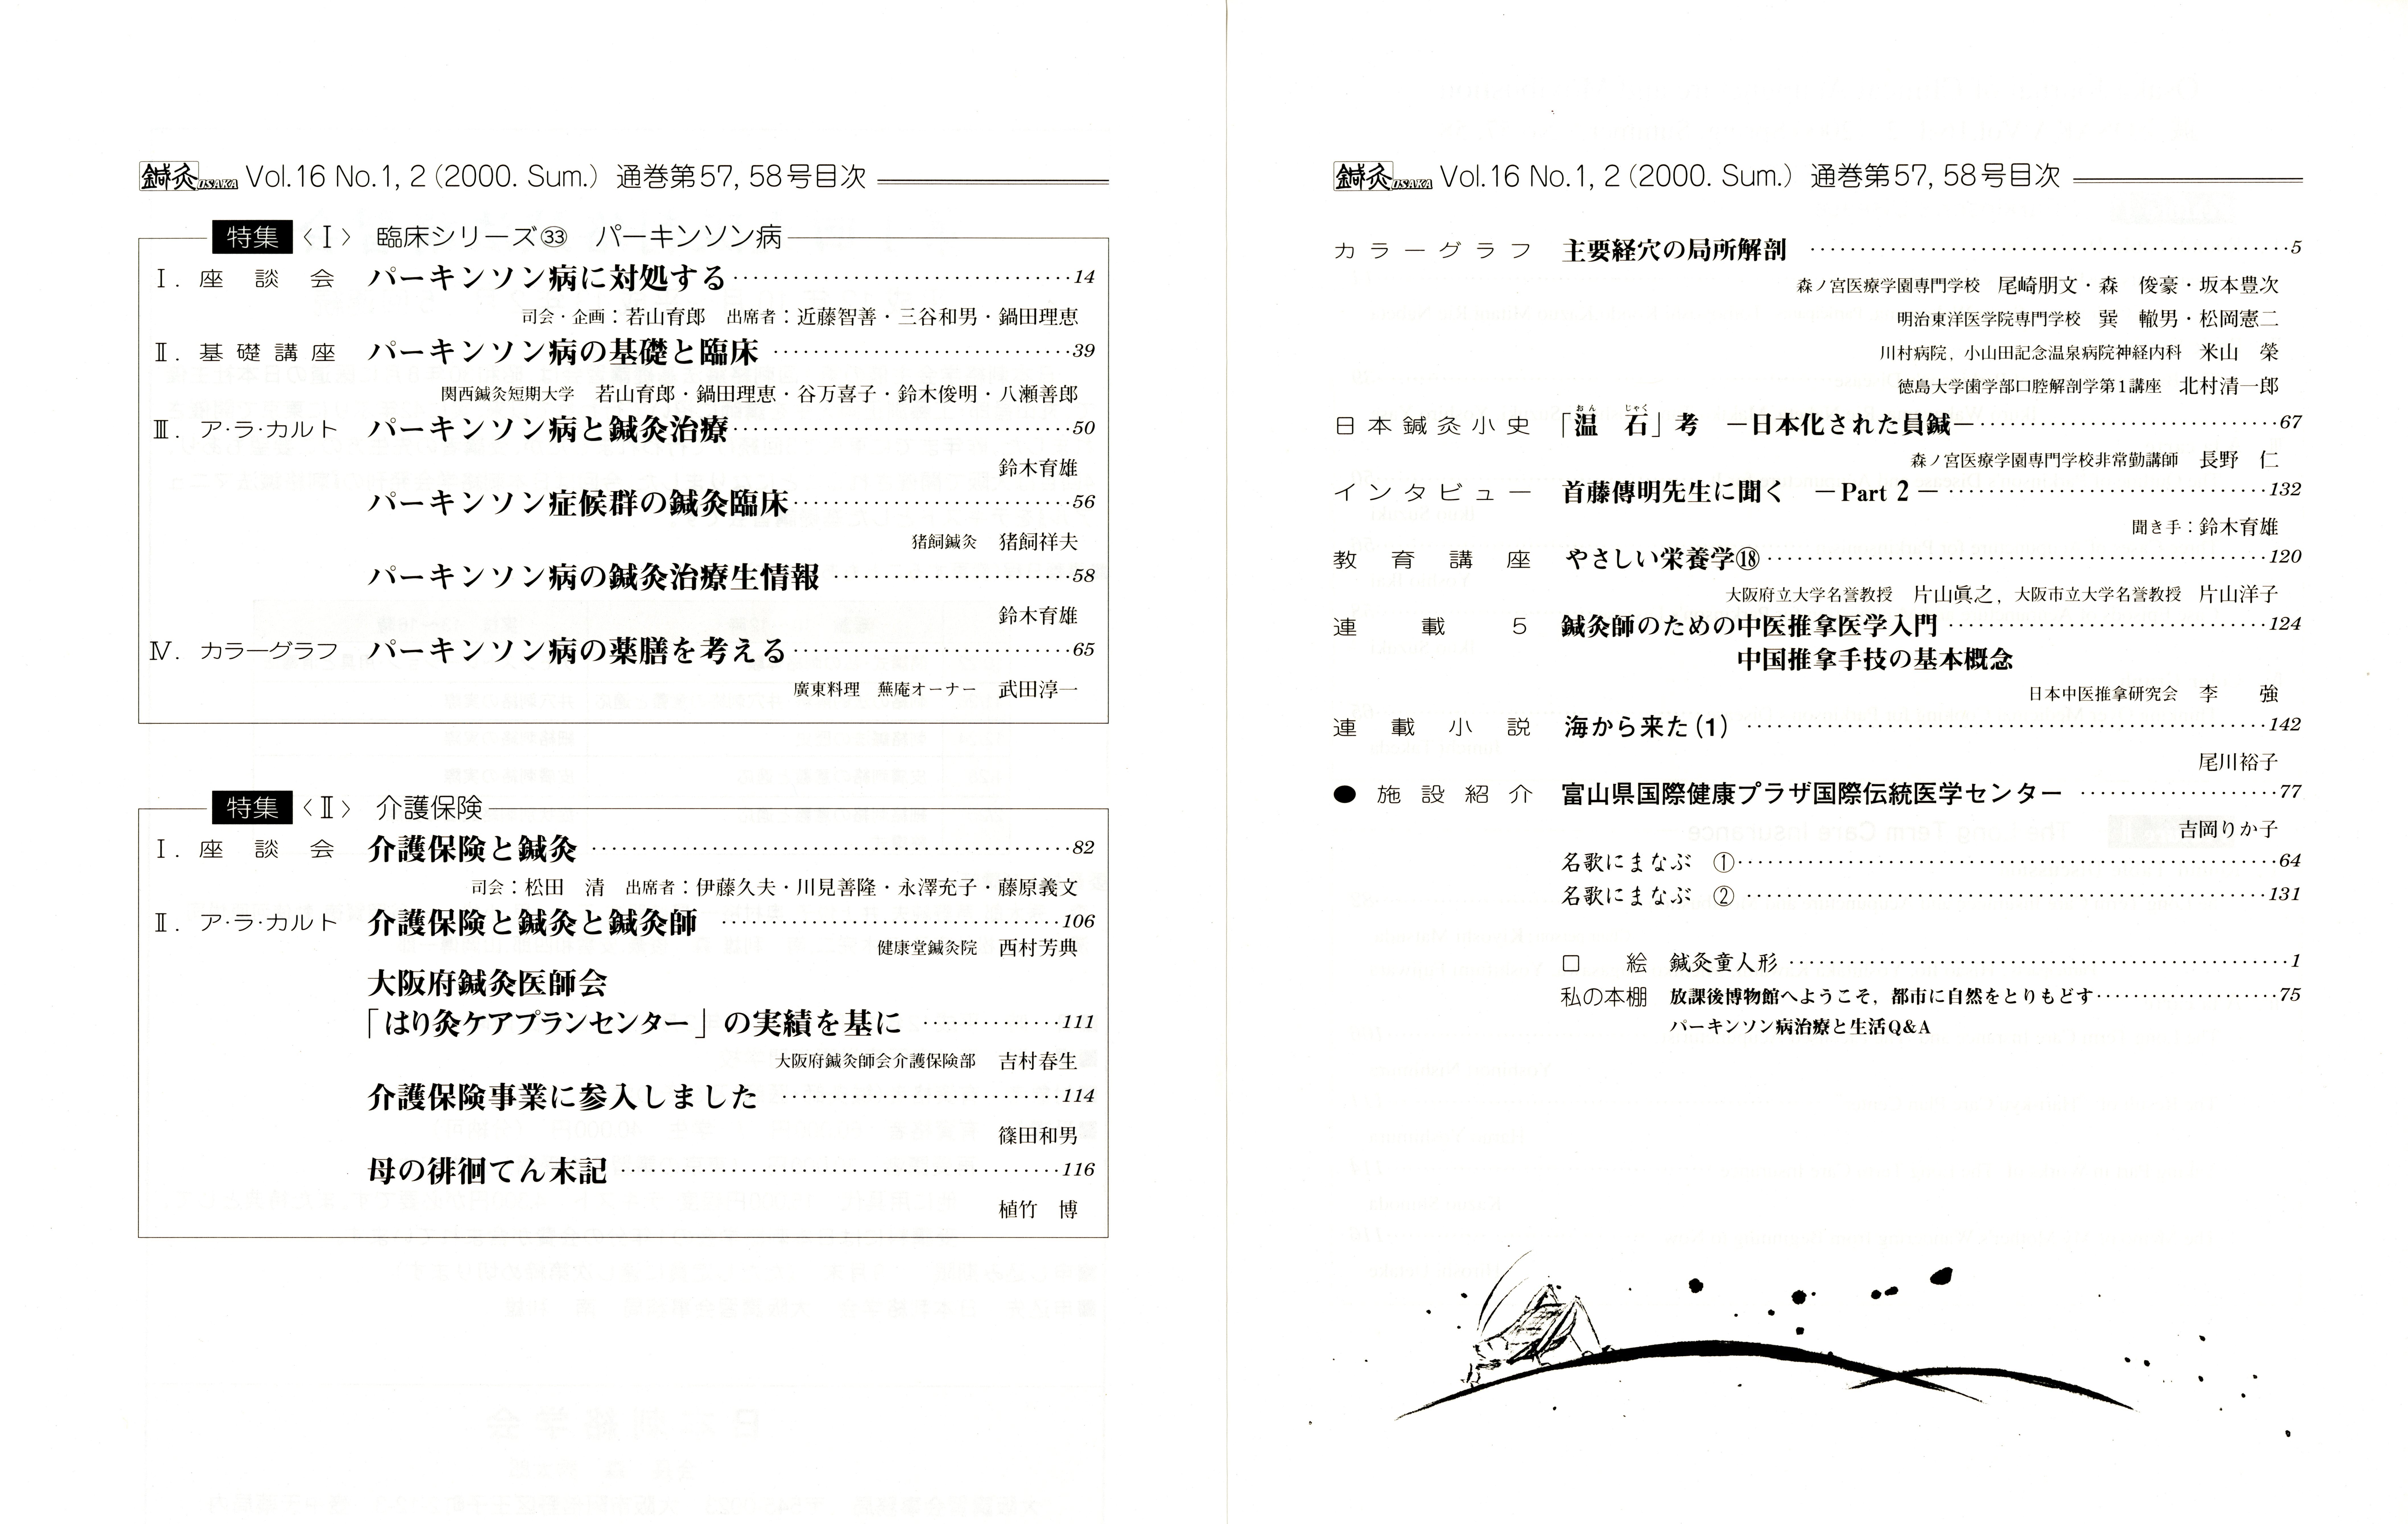 鍼灸OSAKA Vol.16 No.1, 2（2000. Sum.）通巻第57, 58号目次
特集〈Ⅰ〉 臨床シリーズ㉝ パーキンソン病
Ⅰ. 座談会 パーキンソン病に対処する……14
司会・企画：若山育郎 出席者：近藤智善・三谷和男・鍋田理恵
Ⅱ. 基礎講座 パーキンソン病の基礎と臨床……39
関西鍼灸短期大学 若山育郎・鍋田理恵・谷万喜子・鈴木俊明・八瀬善郎
Ⅲ. ア・ラ・カルト パーキンソン病と鍼灸治療……50
鈴木育雄
パーキンソン症候群の鍼灸臨床……56
猪飼鍼灸 猪飼祥夫
パーキンソン病の鍼灸治療生情報……58
鈴木育雄
Ⅳ. カラーグラフ パーキンソン病の薬膳を考える……65
廣東料理 蕪庵オーナー 武田淳一
特集〈Ⅱ〉 介護保険
Ⅰ. 座談会 介護保険と鍼灸……82
司会：松田 清 出席者：伊藤久夫・川見善隆・永澤充子・藤原義文
Ⅱ. ア・ラ・カルト 介護保険と鍼灸と鍼灸師……106
健康堂鍼灸院 西村芳典
大阪府鍼灸医師会
「はり灸ケアプランセンター」の実績を基に……111
大阪府鍼灸師会介護保険部 吉村春生
介護保険事業に参入しました……114
篠田和男
母の徘徊てん末記……116
植竹 博
鍼灸OSAKA Vol.16 No.1, 2（2000. Sum.）通巻第57, 58号目次
カラーグラフ 主要経穴の局所解剖……5
森ノ宮医療学園専門学校 尾崎朋文・森 俊豪・坂本豊次
明治東洋医学院専門学校 巽 轍男・松岡憲二
川村病院，小山田記念温泉病院神経内科 米山 榮
徳島大学歯学部口腔解剖学第1講座 北村清一郎
おん じゃく
日本鍼灸小史 「温 石」考 ―日本化された員鍼―……67
森ノ宮医療学園専門学校非常勤講師 長野 仁
インタビュー 首藤傳明先生に聞く ―Part 2―……132
聞き手：鈴木育雄
教育講座 やさしい栄養学⑱……120
大阪府立大学名誉教授 片山眞之，大阪市立大学名誉教授 片山洋子
連載5 鍼灸師のための中医推拿医学入門……124
中国推拿手技の基本概念
日本中医推拿研究会 李 強
連載小説 海から来た（1）……142
尾川裕子
●施設紹介 富山県国際健康プラザ国際伝統医学センター……77
吉岡りか子
名歌にまなぶ ①……64
名歌にまなぶ ②……131
口絵 鍼灸童人形……1
私の本棚 放課後博物館へようこそ，都市に自然をとりもどす……75
パーキンソン病治療と生活Q&A